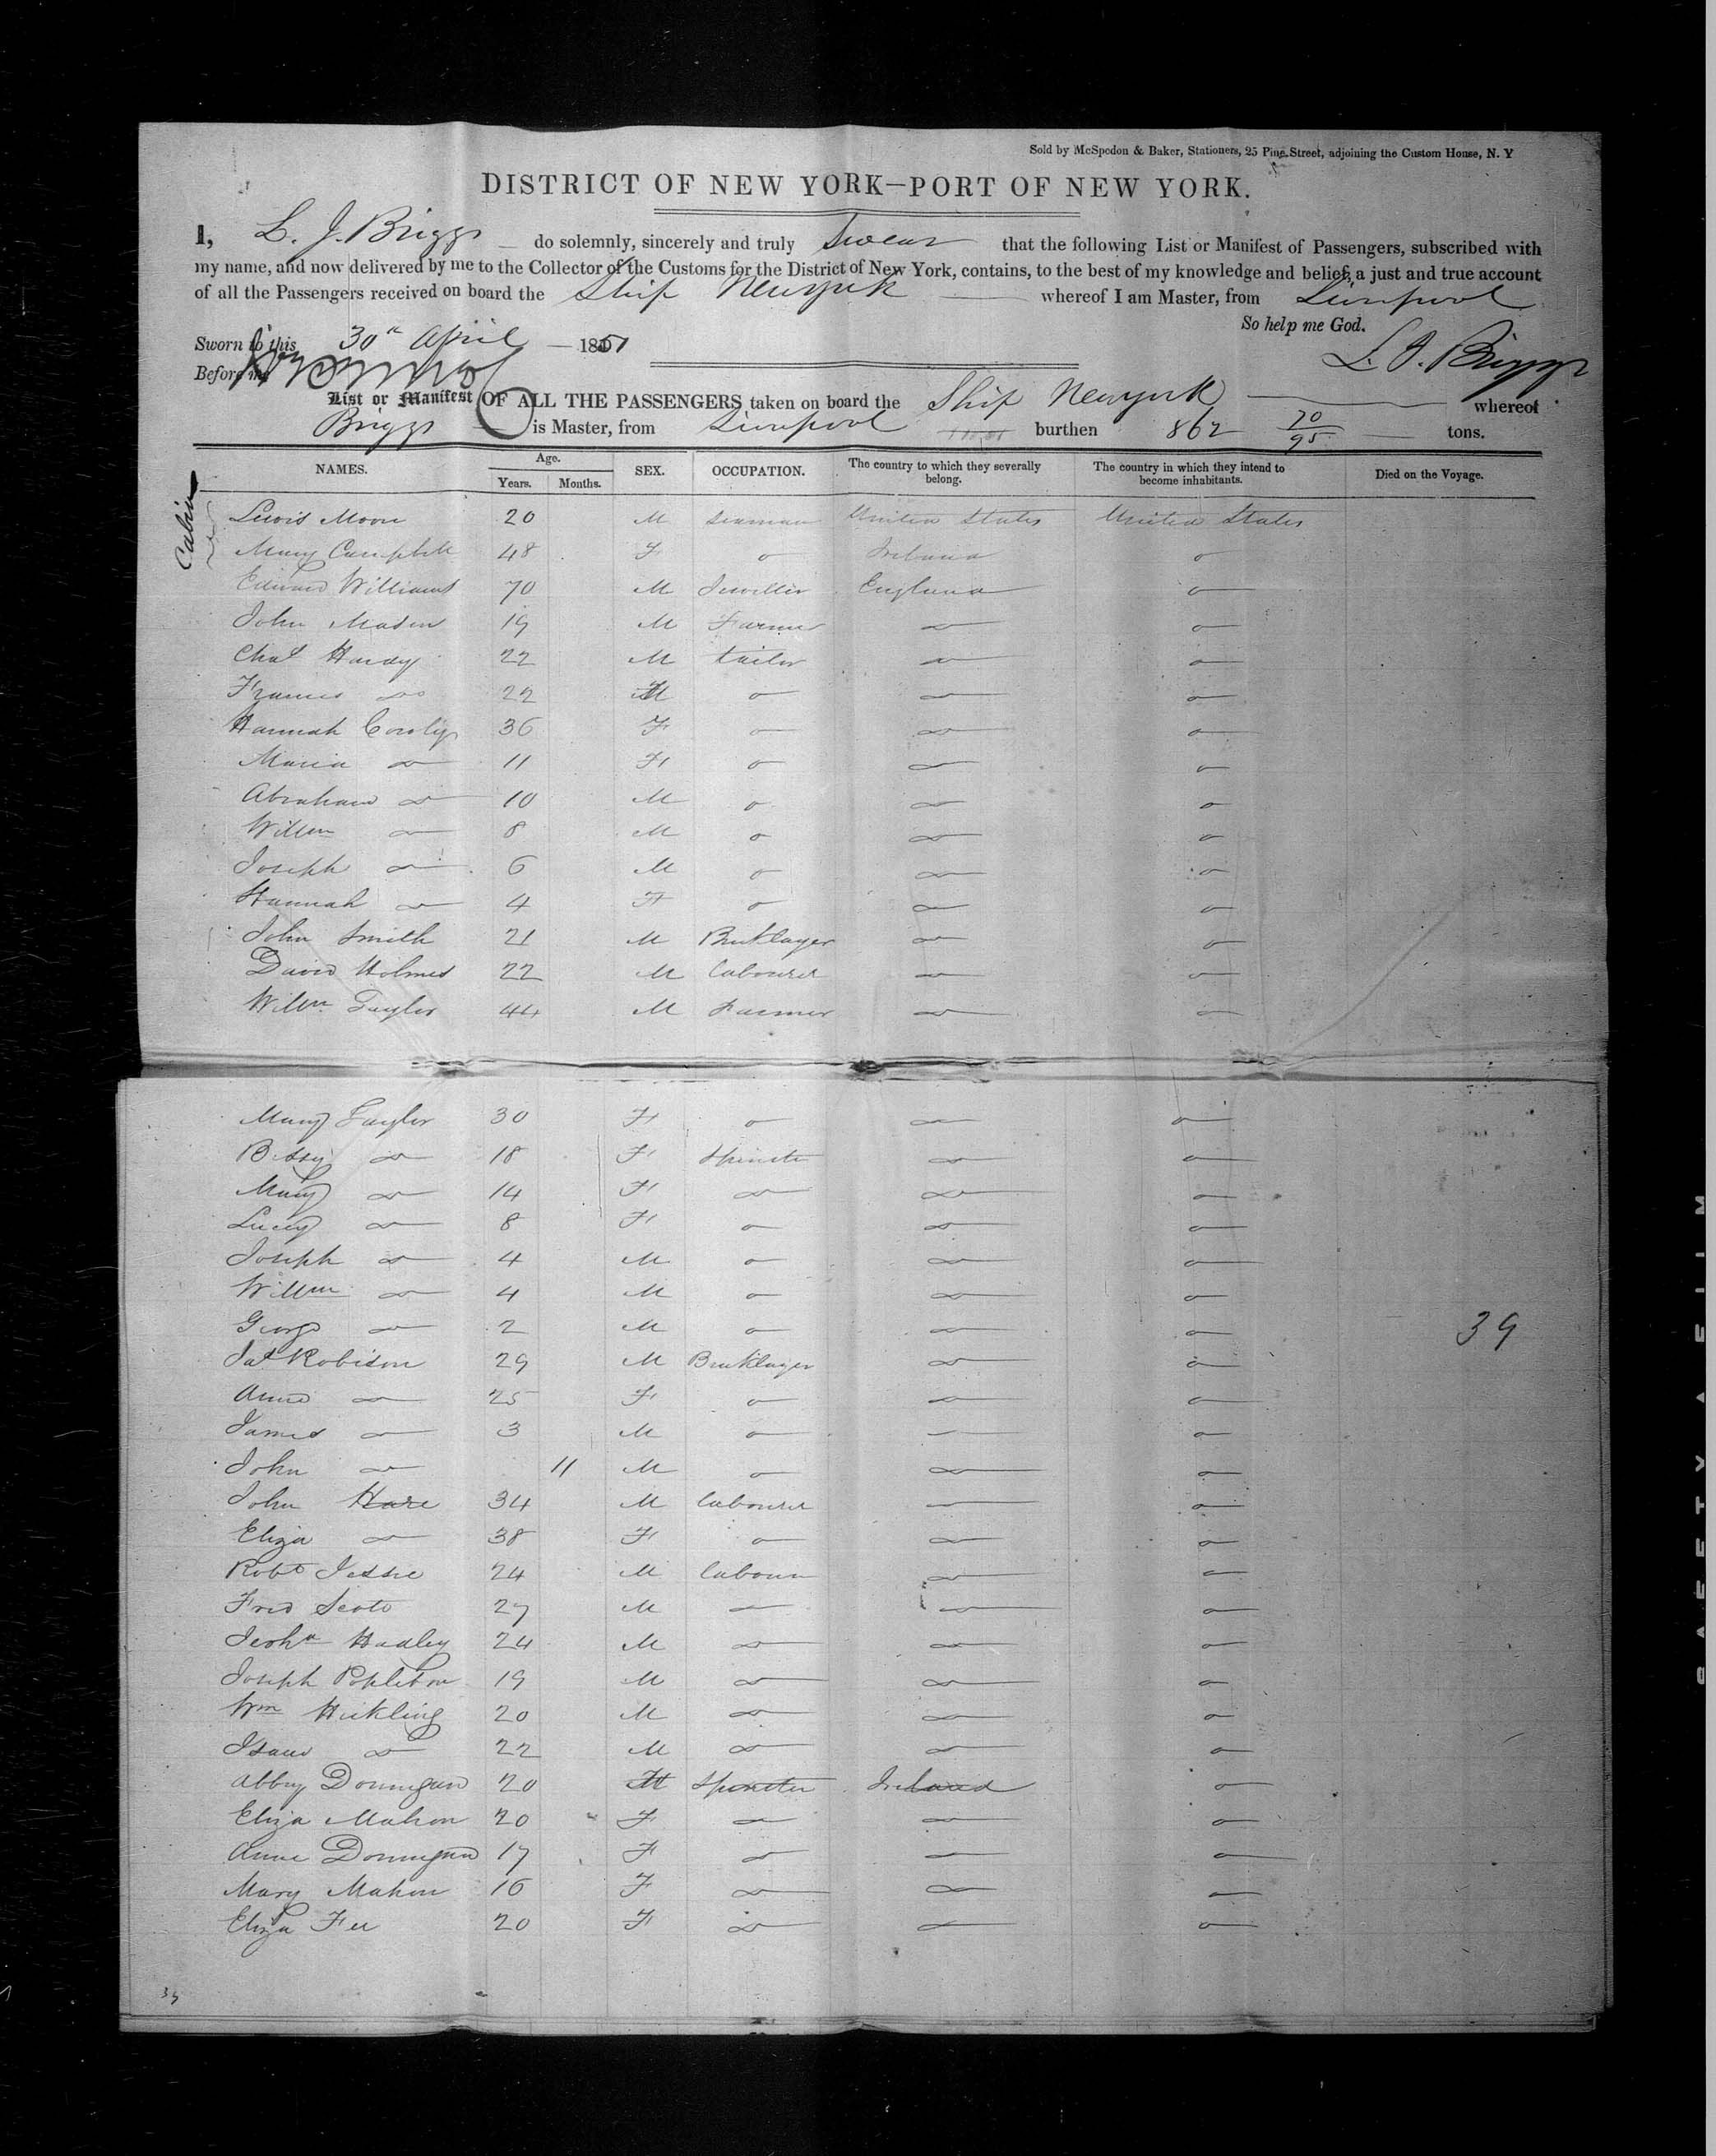 Sold by McSpedon & Baker, Stationers, 25 Pine Street, adjoining the Custom House, N. Y
DISTRICT OF NEW YORK—PORT OF NEW YORK.
I, L. J. Briggs do solemnly, sincerely and truly Swear that the following List or Manifest of Passengers, subscribed with
my name, and now delivered by me to the Collector of the Customs for the District of New York, contains, to the best of my knowledge and belief, a just and true account
of all the Passengers received on board the Ship Newyork whereof I am Master, from Liverpool
So help me God.
Sworn to this 30th April 1851
L. J. Briggs
Before me
List or Manifest OF ALL THE PASSENGERS taken on board the Ship Newyork whereof
Briggs is Master, from Liverpool burthen 862 70/95 tons.
NAMES. Age. Years. Months. SEX. OCCUPATION. The country to which they severally belong. The country in which they intend to become inhabitants. Died on the Voyage.
Cabin
Lewis Moon 20 M Seaman United States United States
Mary Campbell 48 F " Ireland "
Edward Williams 70 M Jeweller England "
John Mason 19 M Farmer do "
Chas Hardy 22 M tailor do "
Frances do 22 F " do "
Hannah 36 F " do "
Maria do 11 F " do "
Abraham do 10 M " do "
Willm do 8 M " do "
Joseph do 6 M " do "
Hannah do 4 F " do "
John Smith 21 M Bricklayer do "
David Holmes 22 M labourer do "
Willm Taylor 44 M Farmer do "
Mary Taylor 30 F " do "
Betsy do 18 F Spinster do "
Mary do 14 F do do "
Lucy do 8 F " do "
Joseph do 4 M " do "
Willm do 4 M " do "
George do 2 M " do "
39
Jas Robison 29 M Bricklayer do "
Anne do 25 F " do "
James do 3 M " do "
John do 11 M " do "
John Hare 34 M labourer do "
Eliza do 38 F " do "
Robt Jessie 24 M labourer do "
Fred Scott 27 M do do "
Hadley 24 M do do "
Joseph Popleton 19 M do do "
Wm Hickling 20 M do do "
Isaac do 22 M do do "
Abby Donnigan 20 F Spinster Ireland "
Eliza Mahon 20 F do do "
Anne Donnigan 17 F do do "
Mary Mahon 16 F do do "
Eliza Fee 20 F do do "
39
SAFETY FILM